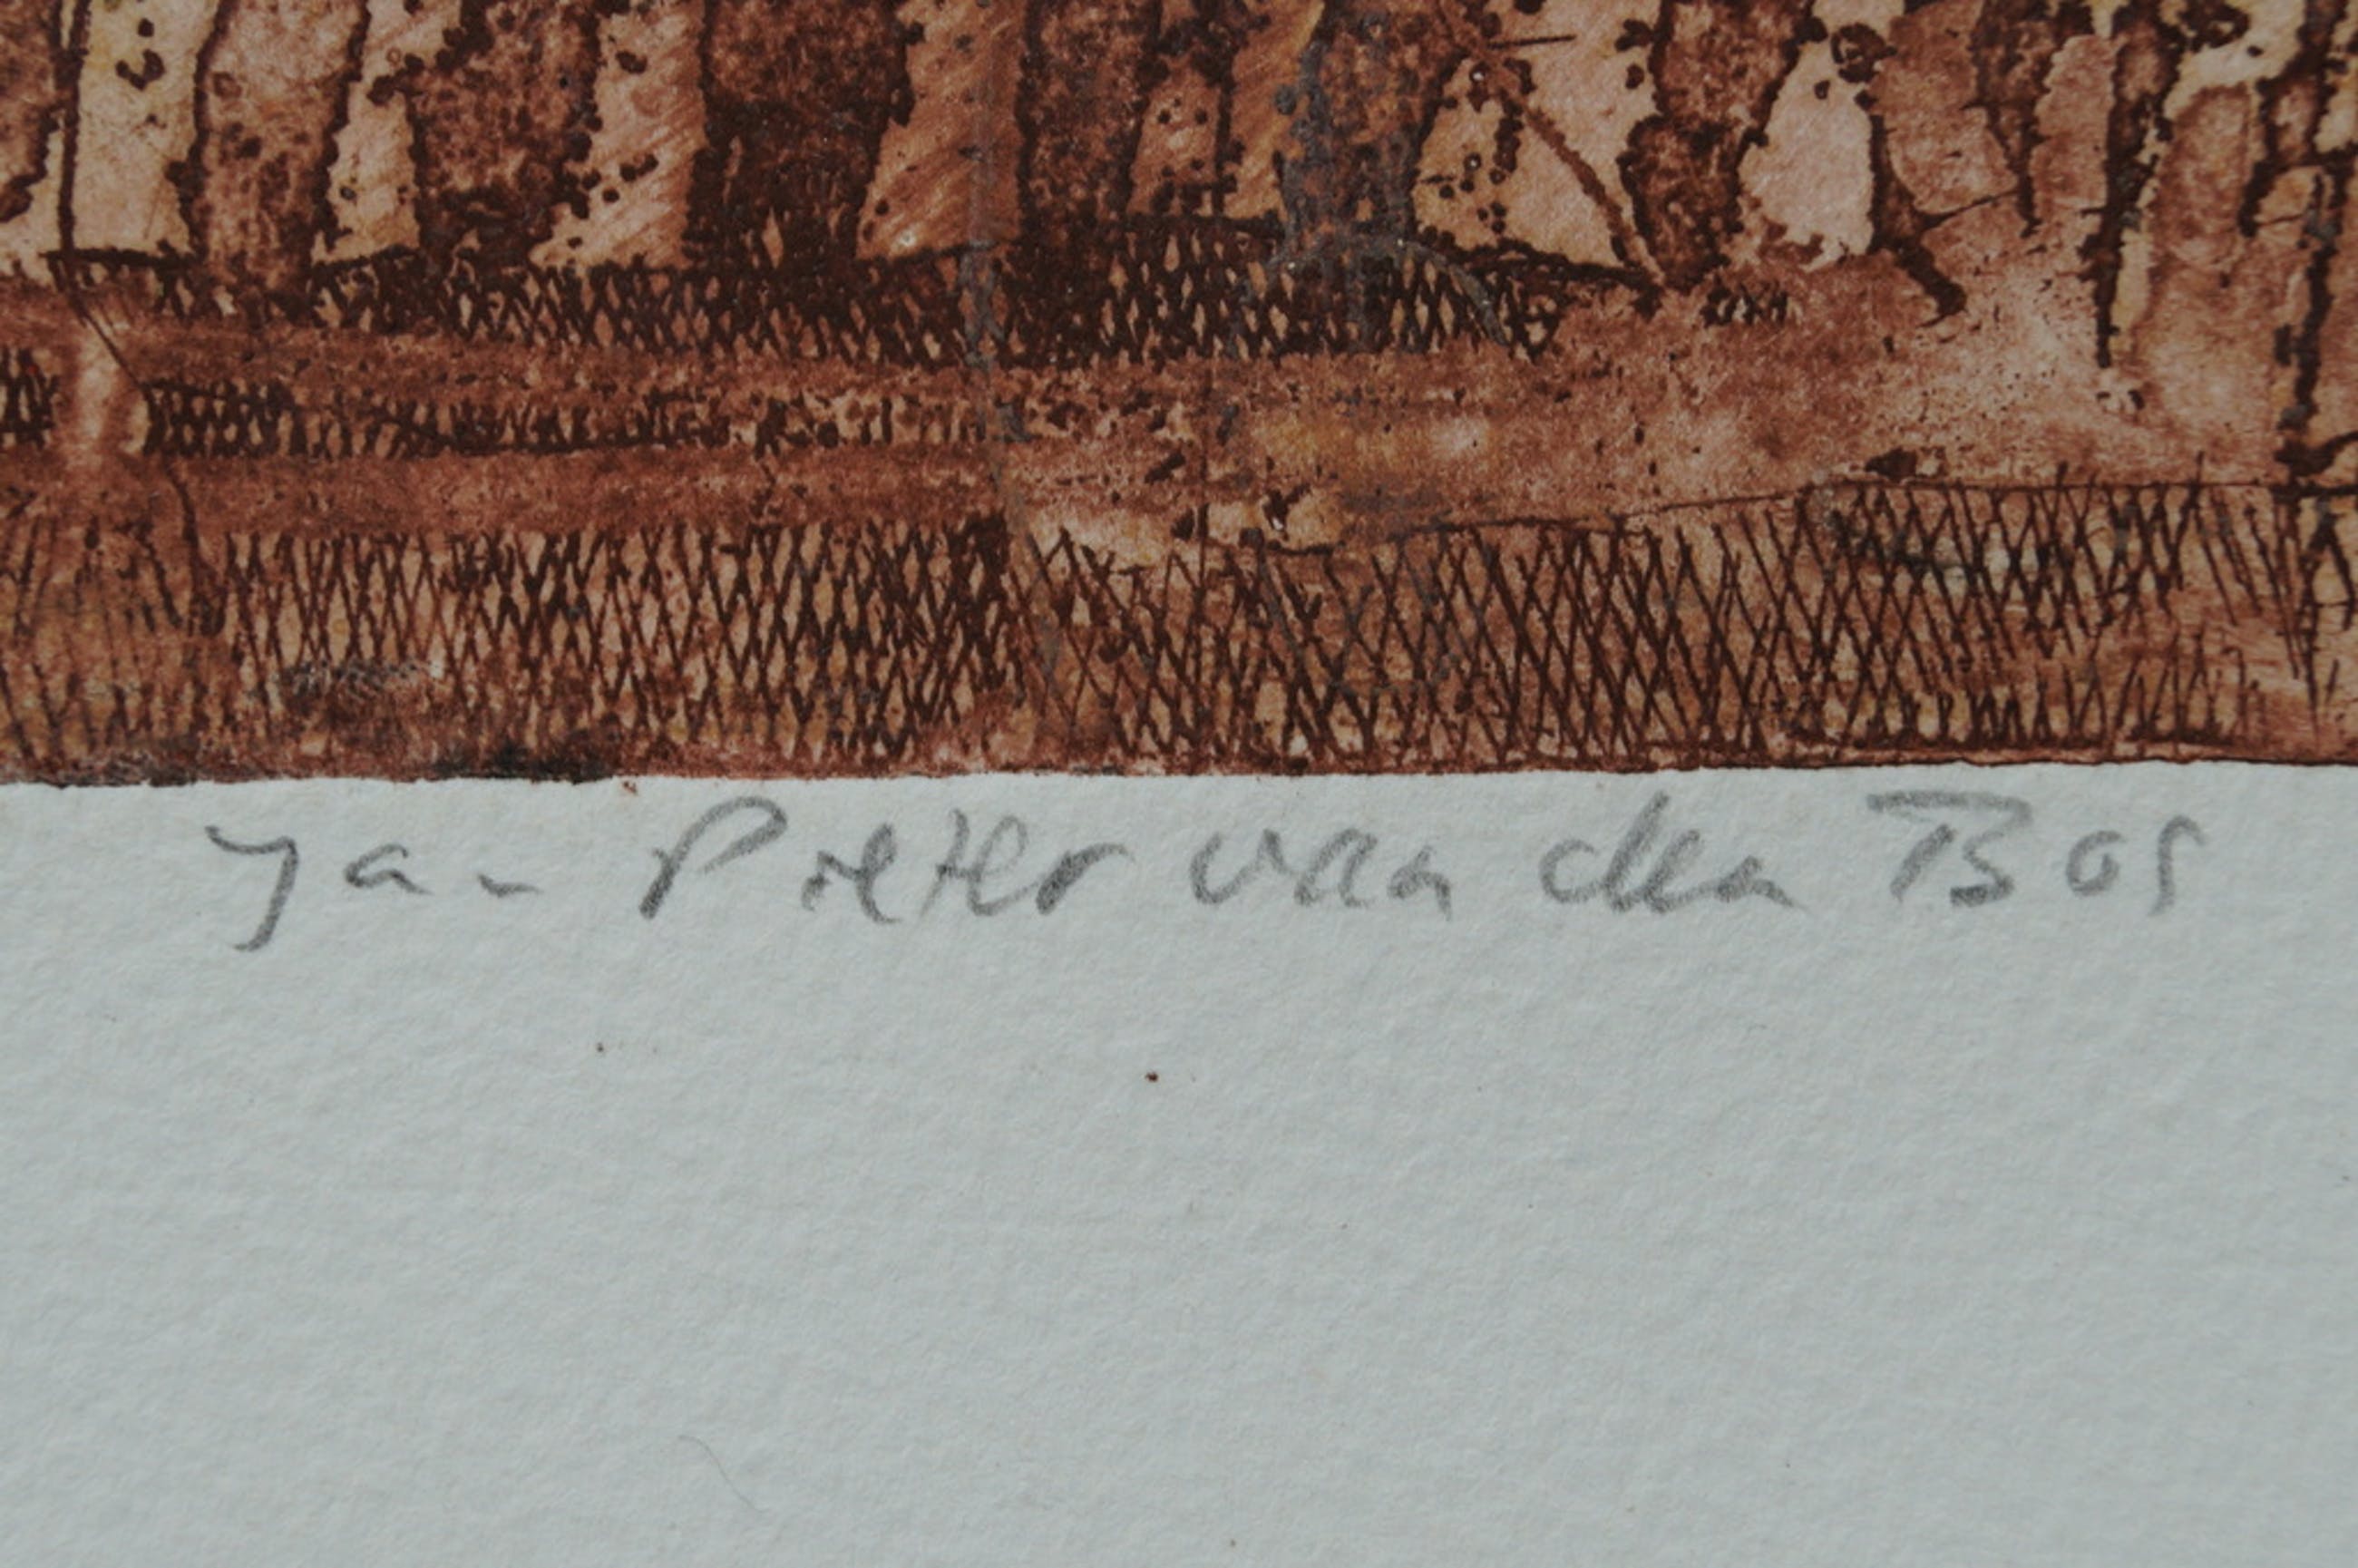 Jan Pieter van den Bos